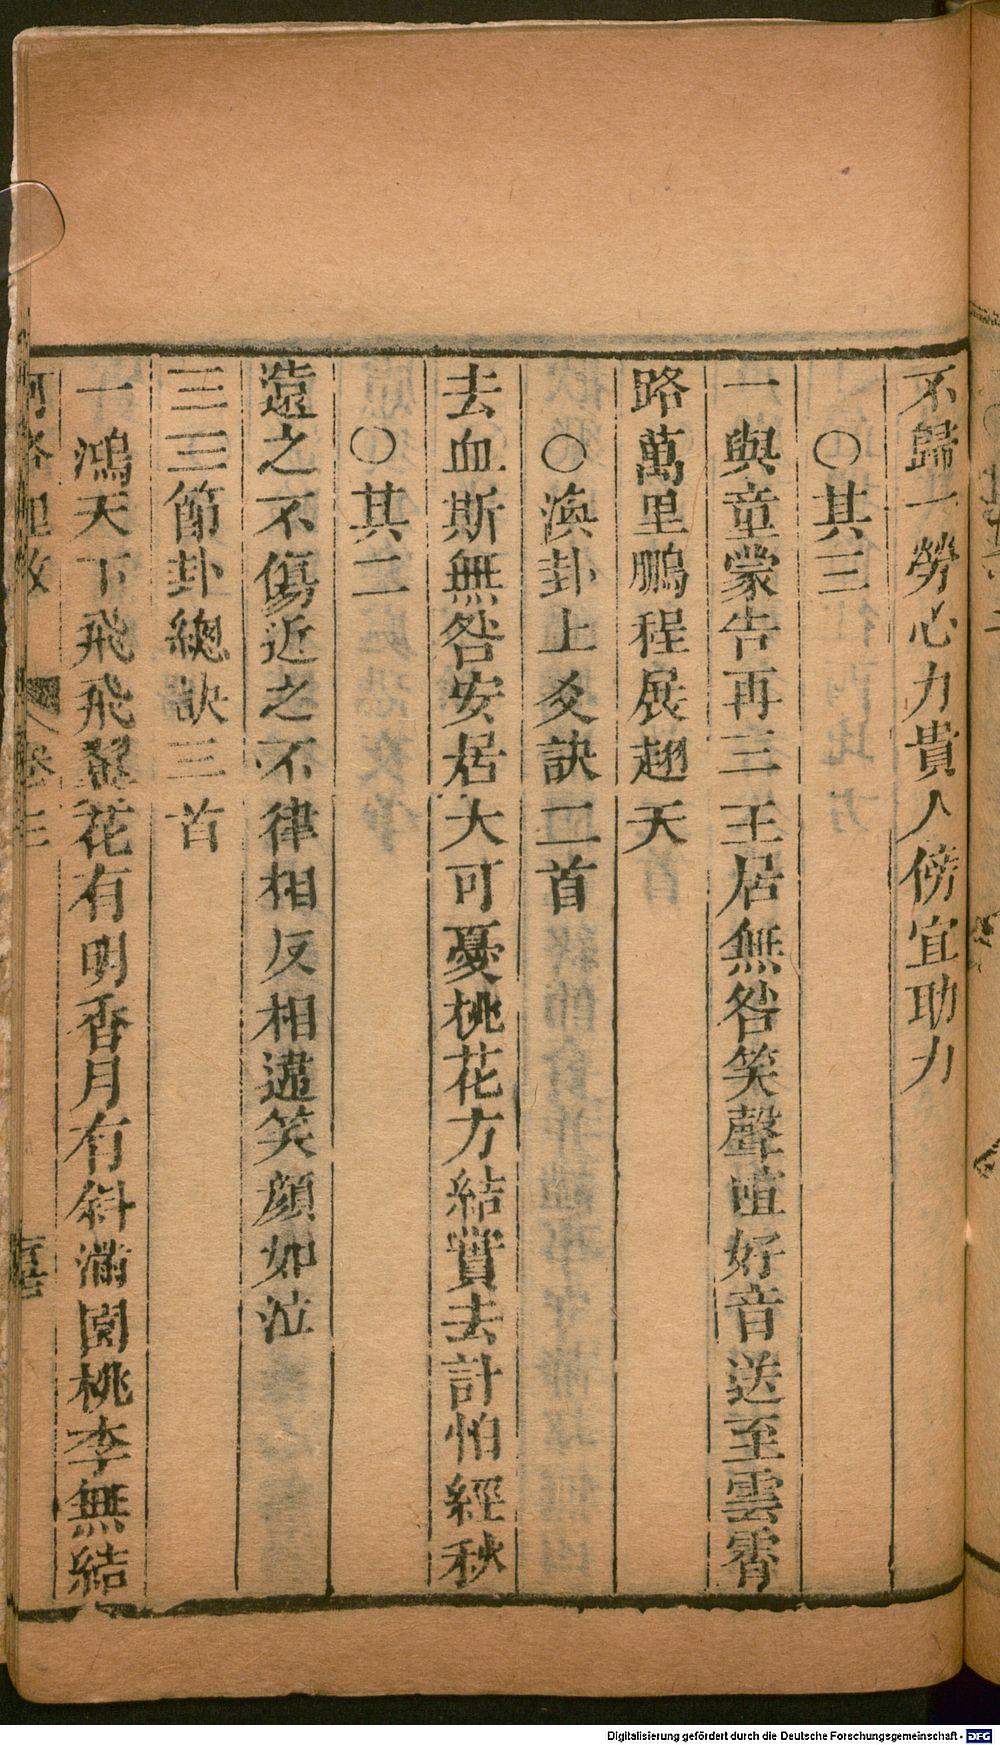 不歸一勞心力貴人傍宜助力
○其三
一與童蒙告再三王居無咎笑聲喧好音送至雲霄
路萬里鵬程展翅天
○渙卦上爻訣二首
去血斯無咎安居大可憂桃花方結實去計怕經秋
○其二
遠之不傷近之不律相反相違笑顏如泣
三三節卦總訣三首
一鴻天下飛飛翼花有明香月有斜滿園桃李無結
河洛理數 卷三
Digitalisierung gefördert durch die Deutsche Forschungsgemeinschaft - DFG